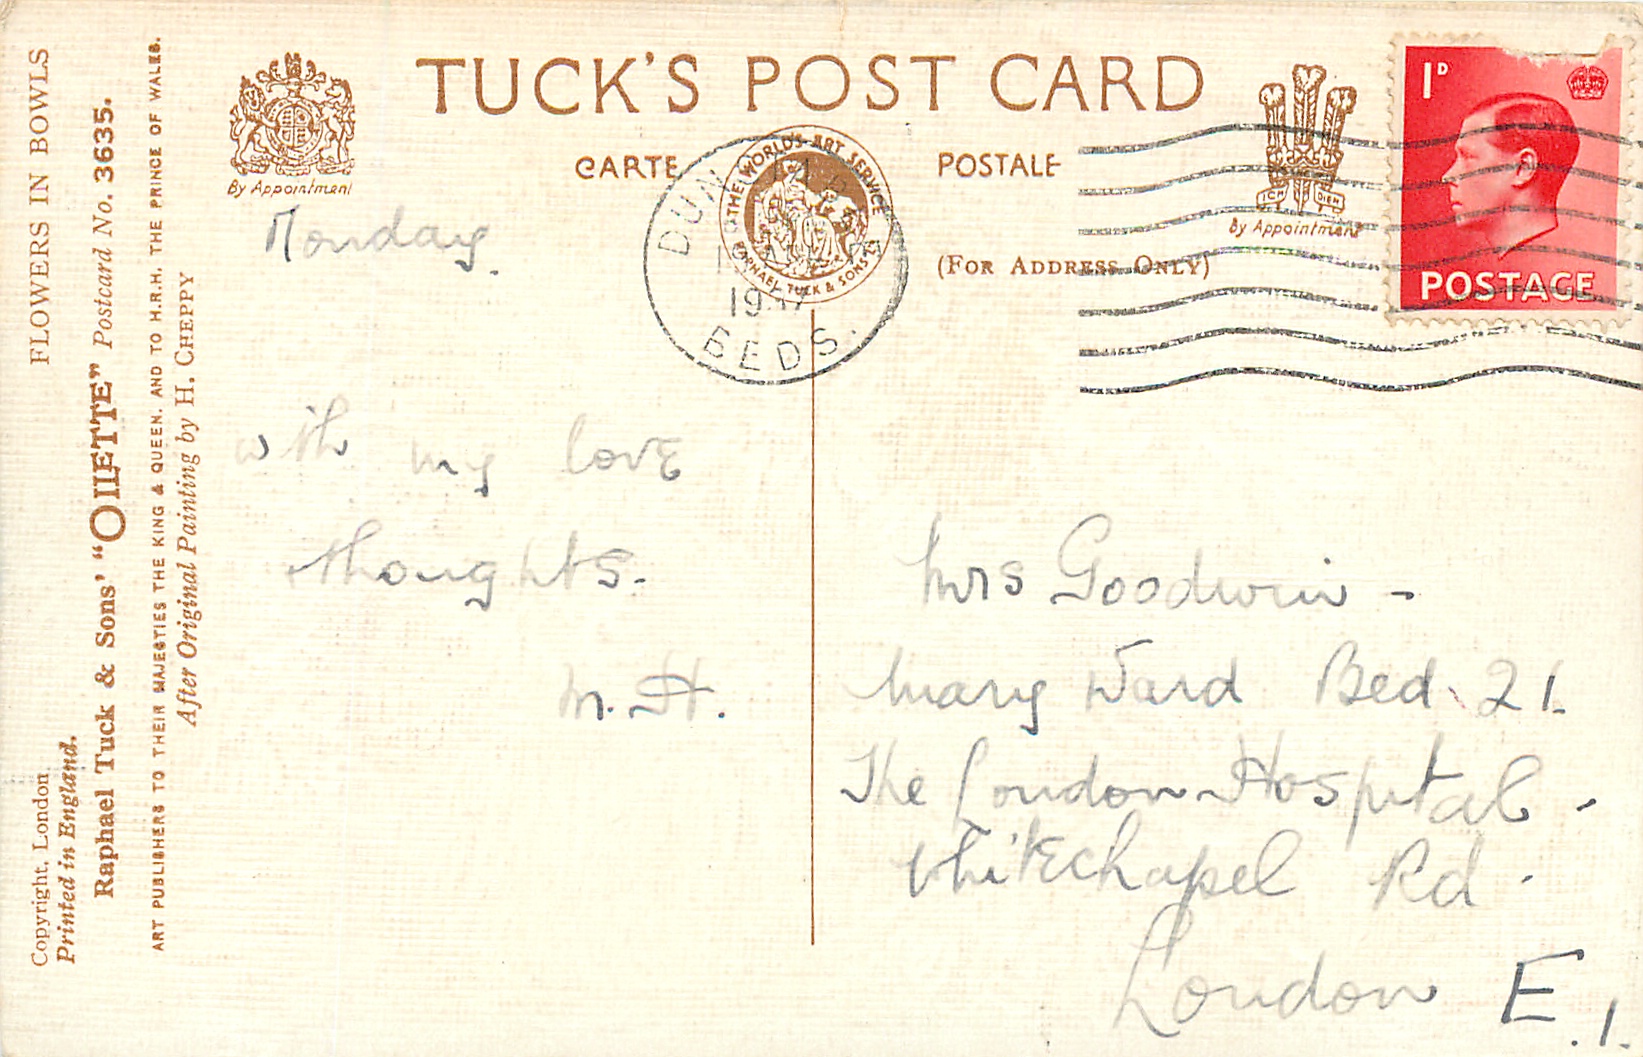 TUCK'S POST CARD
CARTE POSTALE
(FOR ADDRESS ONLY)
By Appointment
By Appointment
ICH DIEN
THE WORLD'S ART SERVICE
RAPHAEL TUCK & SONS LD
BEDS.
1D
POSTAGE
FLOWERS IN BOWLS
Copyright, London
Printed in England.
Raphael Tuck & Sons' "OILETTE" Postcard No. 3635.
ART PUBLISHERS TO THEIR MAJESTIES THE KING & QUEEN, AND TO H.R.H. THE PRINCE OF WALES.
After Original Painting by H. CHEPPY
Monday.
with my love
thoughts.
M.H.
Mrs Goodwin -
Mary Ward Bed 21.
The London Hospital -
Whitechapel Rd.
London E.1.